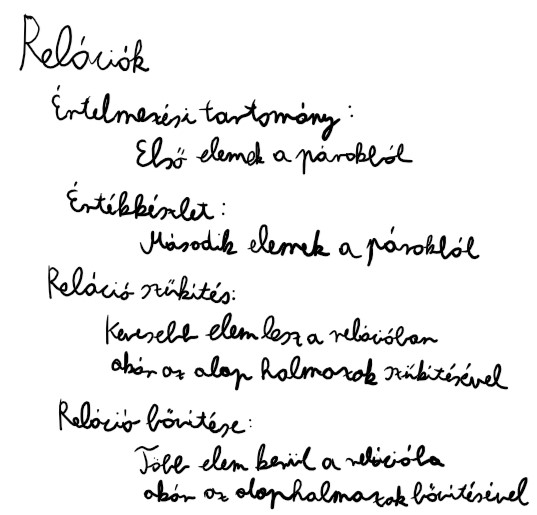 Relációk
Értelmezési tartomány:
Első elemek a párokból
Értékkészlet:
Második elemek a párokból
Reláció szűkítés:
Kevesebb elem lesz a relációban
akár az alap halmazok szűkítésével
Reláció bővítése:
Több elem kerül a relációba
akár az alaphalmazok bővítésével